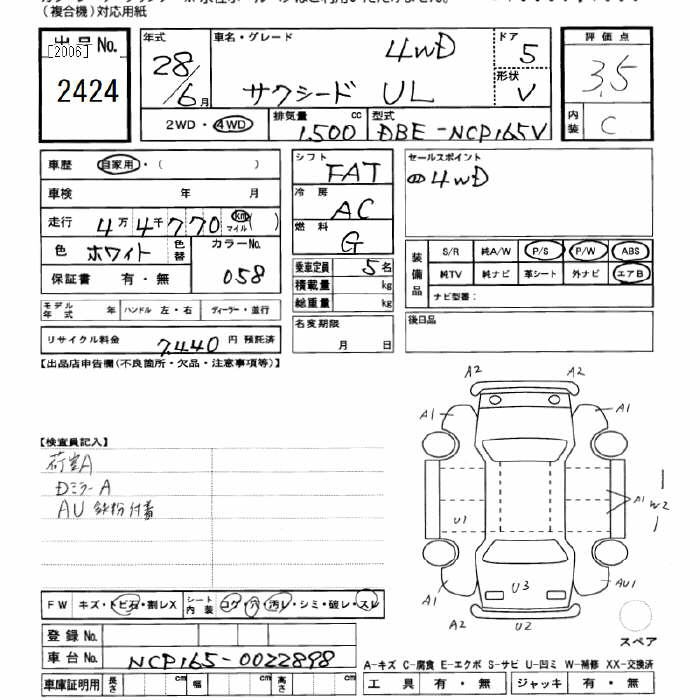 （複合機）対応用紙
出品No.
[2006]
2424
年式 28/6月
車名・グレード 4WD
サクシード UL
ドア 5
形状 V
2WD・4WD
排気量 1,500 cc
型式 DBE-NCP165V
評価点 3.5
内装 C
車歴 自家用・（ ）
車検 年 月
走行 4万4千770 km マイル（ ）
色 ホワイト 色替 カラーNo. 058
保証書 有・無
モデル年式 年 ハンドル 左・右 ディーラー・並行
リサイクル料金 7,440 円 預託済
シフト FAT
冷房 AC
燃料 G
乗車定員 5名
積載量 kg
総重量 kg
名変期限 月 日
セールスポイント
4WD
装備品 S/R 純A/W P/S P/W ABS
純TV 純ナビ 革シート 外ナビ エアB
ナビ型番：
後日品
【出品店申告欄（不良箇所・欠品・注意事項等）】
【検査員記入】
荷室A
DミラーA
AU 鉄粉付着
FW キズ・トビ石・割レX シート内装 コゲ・穴・汚レ・シミ・破レ・スレ
登録No.
車台No. NCP165-0022898
車庫証明用 長さ cm 幅 cm 高さ cm
A2 A2
A1 A1
A1 W2
U1
U3
A1 AU1
A2 U2
スペア
A-キズ C-腐食 E-エクボ S-サビ U-凹ミ W-補修 XX-交換済
工具 有・無 ジャッキ 有・無